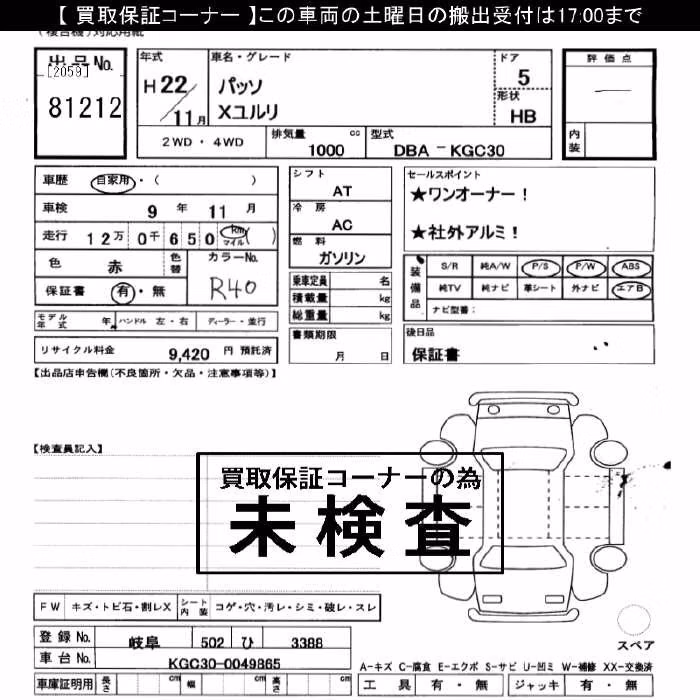 【 買取保証コーナー 】この車両の土曜日の搬出受付は17:00まで
出品No. [2059] 81212
年式 H22/11月
車名・グレード パッソ Xユルリ
ドア 5
形状 HB
2WD・4WD
排気量 cc 1000
型式 DBA － KGC30
評価点 —
内装
車歴 自家用・( )
車検 9 年 11 月
走行 12万 0千 6 5 0 Km マイル ( )
色 赤 色替 カラーNo. R40
保証書 有・無
モデル年式 年 ハンドル 左・右 ディーラー・並行
リサイクル料金 9,420 円 預託済
シフト AT
冷房 AC
燃料 ガソリン
乗車定員 名
積載量 kg
総重量 kg
書類期限 月 日
セールスポイント
★ワンオーナー！
★社外アルミ！
装備品 S/R 純A/W P/S P/W ABS
純TV 純ナビ 革シート 外ナビ エアB
ナビ型番：
後日品
保証書
【出品店申告欄(不良箇所・欠品・注意事項等)】
【検査員記入】
買取保証コーナーの為
未検査
FW キズ・トビ石・割レX シート内装 コゲ・穴・汚レ・シミ・破レ・スレ
登録No. 岐阜 502 ひ 3388
車台No. KGC30-0049865
車庫証明用 長さ cm 幅 cm 高さ cm
スペア
A-キズ C-腐食 E-エクボ S-サビ U-凹ミ W-補修 XX-交換済
工具 有・無 ジャッキ 有・無